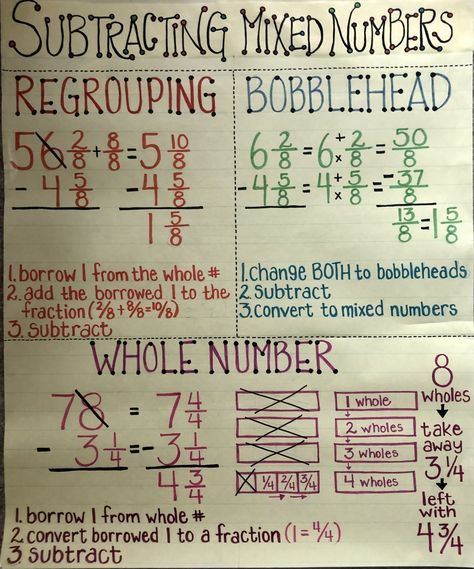 SUBTRACTING MIXED NUMBERS
REGROUPING
5 6 2/8 + 8/8 = 5 10/8
- 4 5/8 - 4 5/8
1 5/8
1. borrow 1 from the whole #
2. add the borrowed 1 to the
fraction (2/8 + 8/8 = 10/8)
3. subtract
BOBBLEHEAD
6 2/8 = 6 + × 2/8 = 50/8
- 4 5/8 = 4 + × 5/8 = - 37/8
13/8 = 1 5/8
1. change BOTH to bobbleheads
2. subtract
3. convert to mixed numbers
WHOLE NUMBER
7 8 = 7 4/4
- 3 1/4 = - 3 1/4
4 3/4
1. borrow 1 from whole #
2. convert borrowed 1 to a fraction (1 = 4/4)
3. subtract
1/4 2/4 3/4
1 whole
2 wholes
3 wholes
4 wholes
8
wholes
take
away
3 1/4
left
with
4 3/4